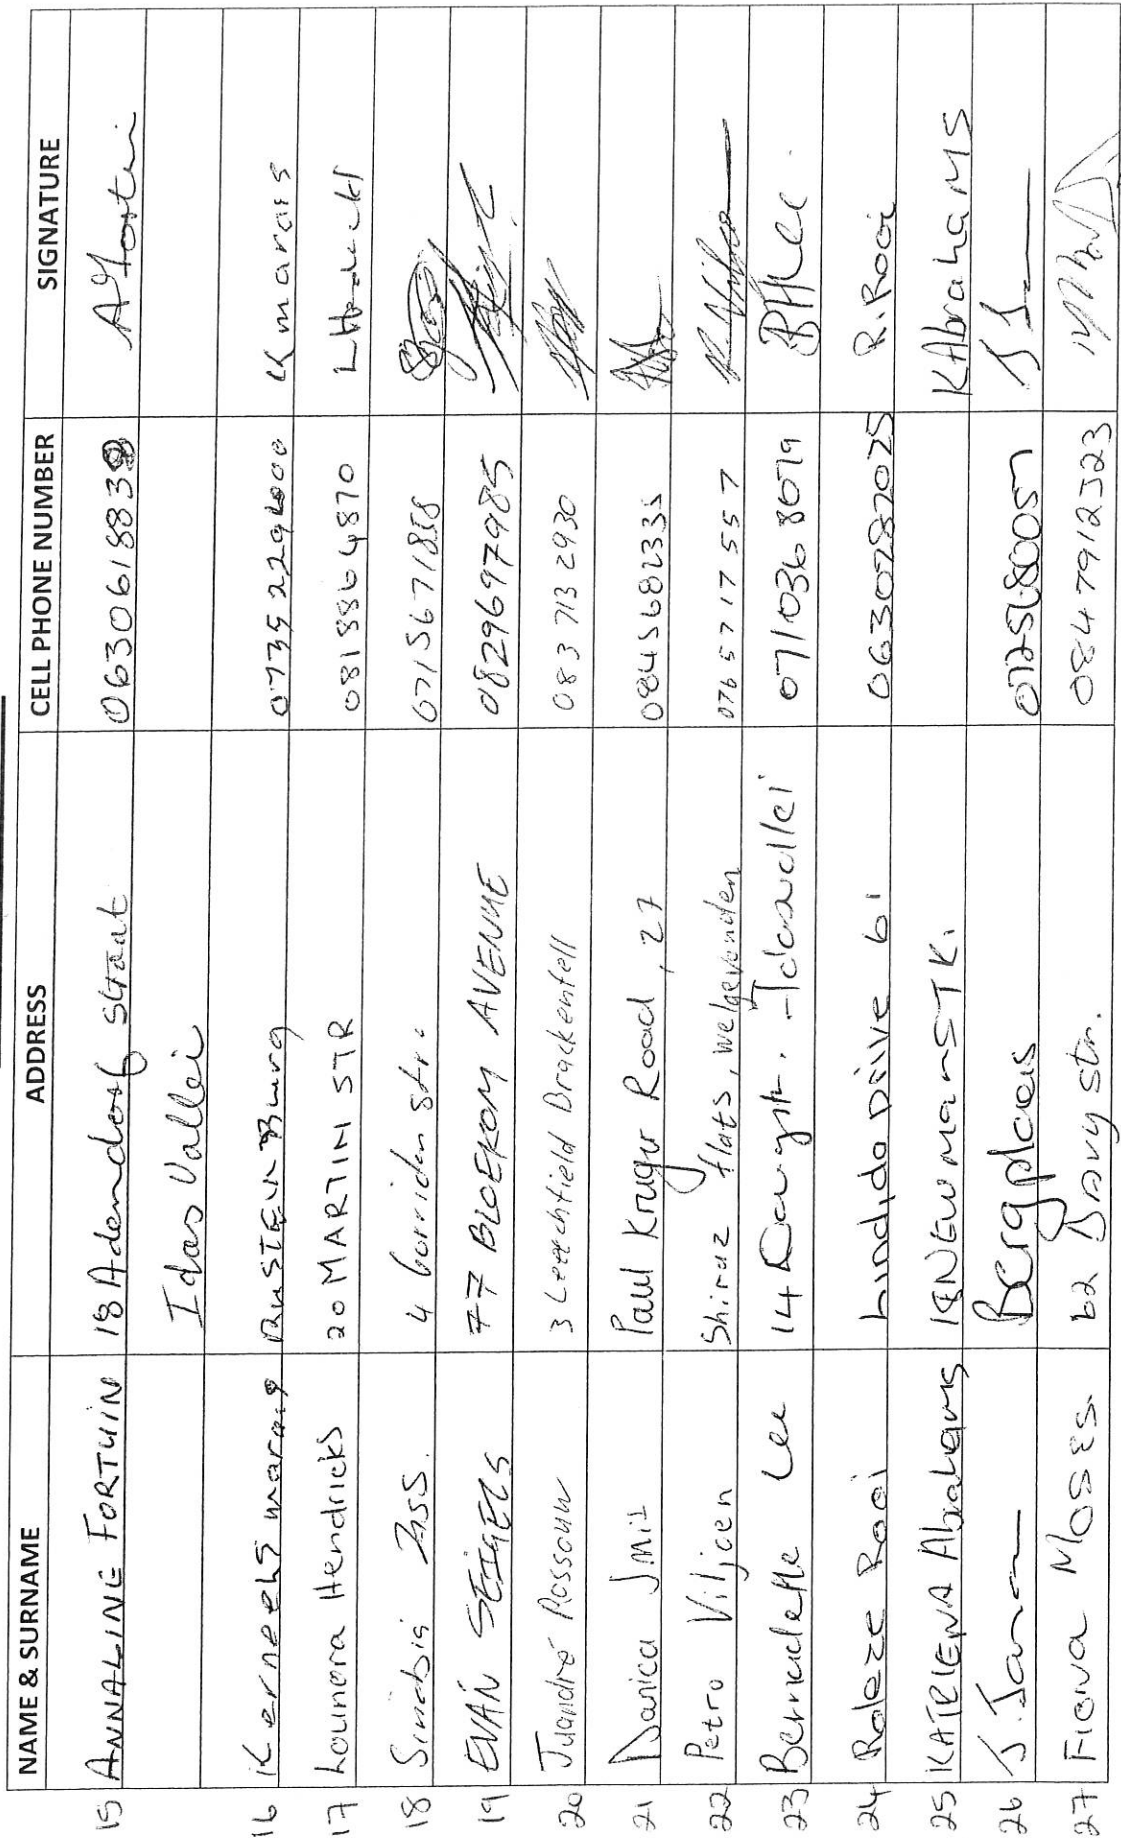 NAME & SURNAME ADDRESS CELL PHONE NUMBER SIGNATURE
15 ANNALINE FORTUIN 18 Adendorf straat 0630618838 A Fortuin
Idas Vallei
16 Kerneels marais RUSTENBurg 0735229600 K marais
17 Lounora Hendricks 20 MARTIN STR 0818864870 L Hendricks
18 4 Gorridon str. 0715671858
19 EVAN SEIGELS 77 BLOEKOM AVENUE 0829697985
20 Juandré Rossouw 3 Leerchfield Brackenfell 083 713 2930
21 Danica Smit Paul Kruger Road, 27 0845682335
22 Petro Viljoen Shiraz flats, welgevonden 0765717557 P. Viljoen
23 Bernadette Lee 14 Davystr. Idasvallei 0710368079 BHLee.
24 Roleze Rooi Lindida Drive 61 0630782025 R. Rooi
25 KATRIENA Abrahams 18 Newman STR. KAbrahaMS
26 J. Bergplaas 0725680057 J J
27 Fiona Moses. 62 Davy str. 0847912523